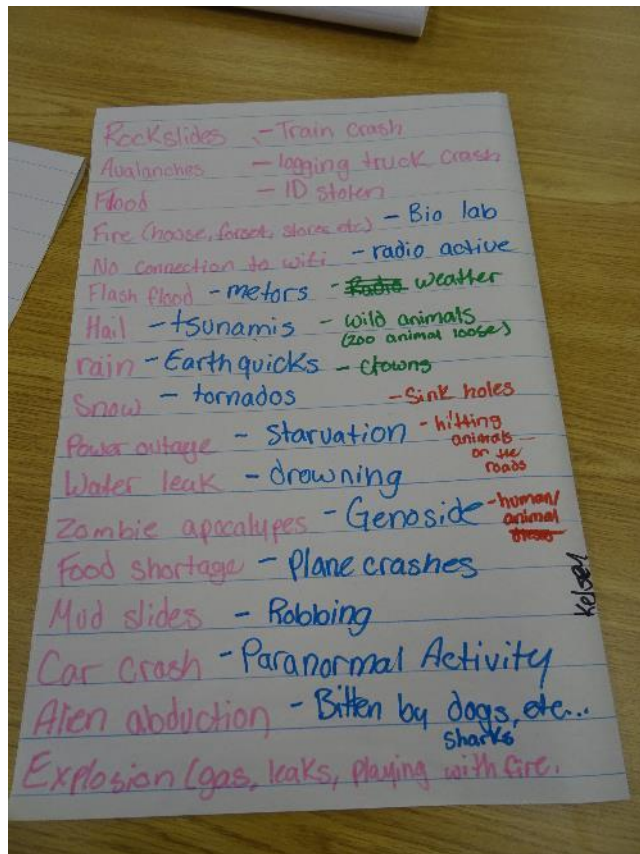 Rockslides - Train crash
Avalanches - logging truck crash
Flood - ID stolen
Fire (house, forset, stores etc) - Bio lab
No connection to wifi - radio active
Flash flood - metors - Radio weather
Hail - tsunamis - wild animals
(zoo animal loose)
rain - Earth quicks - clowns
Snow - tornados - Sink holes
Power outage - Starvation - hitting
animals
on the
roads
Water leak - drowning
Zombie apocalypes - Genoside - human/
animal
Food shortage - Plane crashes
Mud slides - Robbing
Car crash - Paranormal Activity
Alien abduction - Bitten by dogs, etc...
sharks
Explosion (gas, leaks, playing with fire.
Kelsey